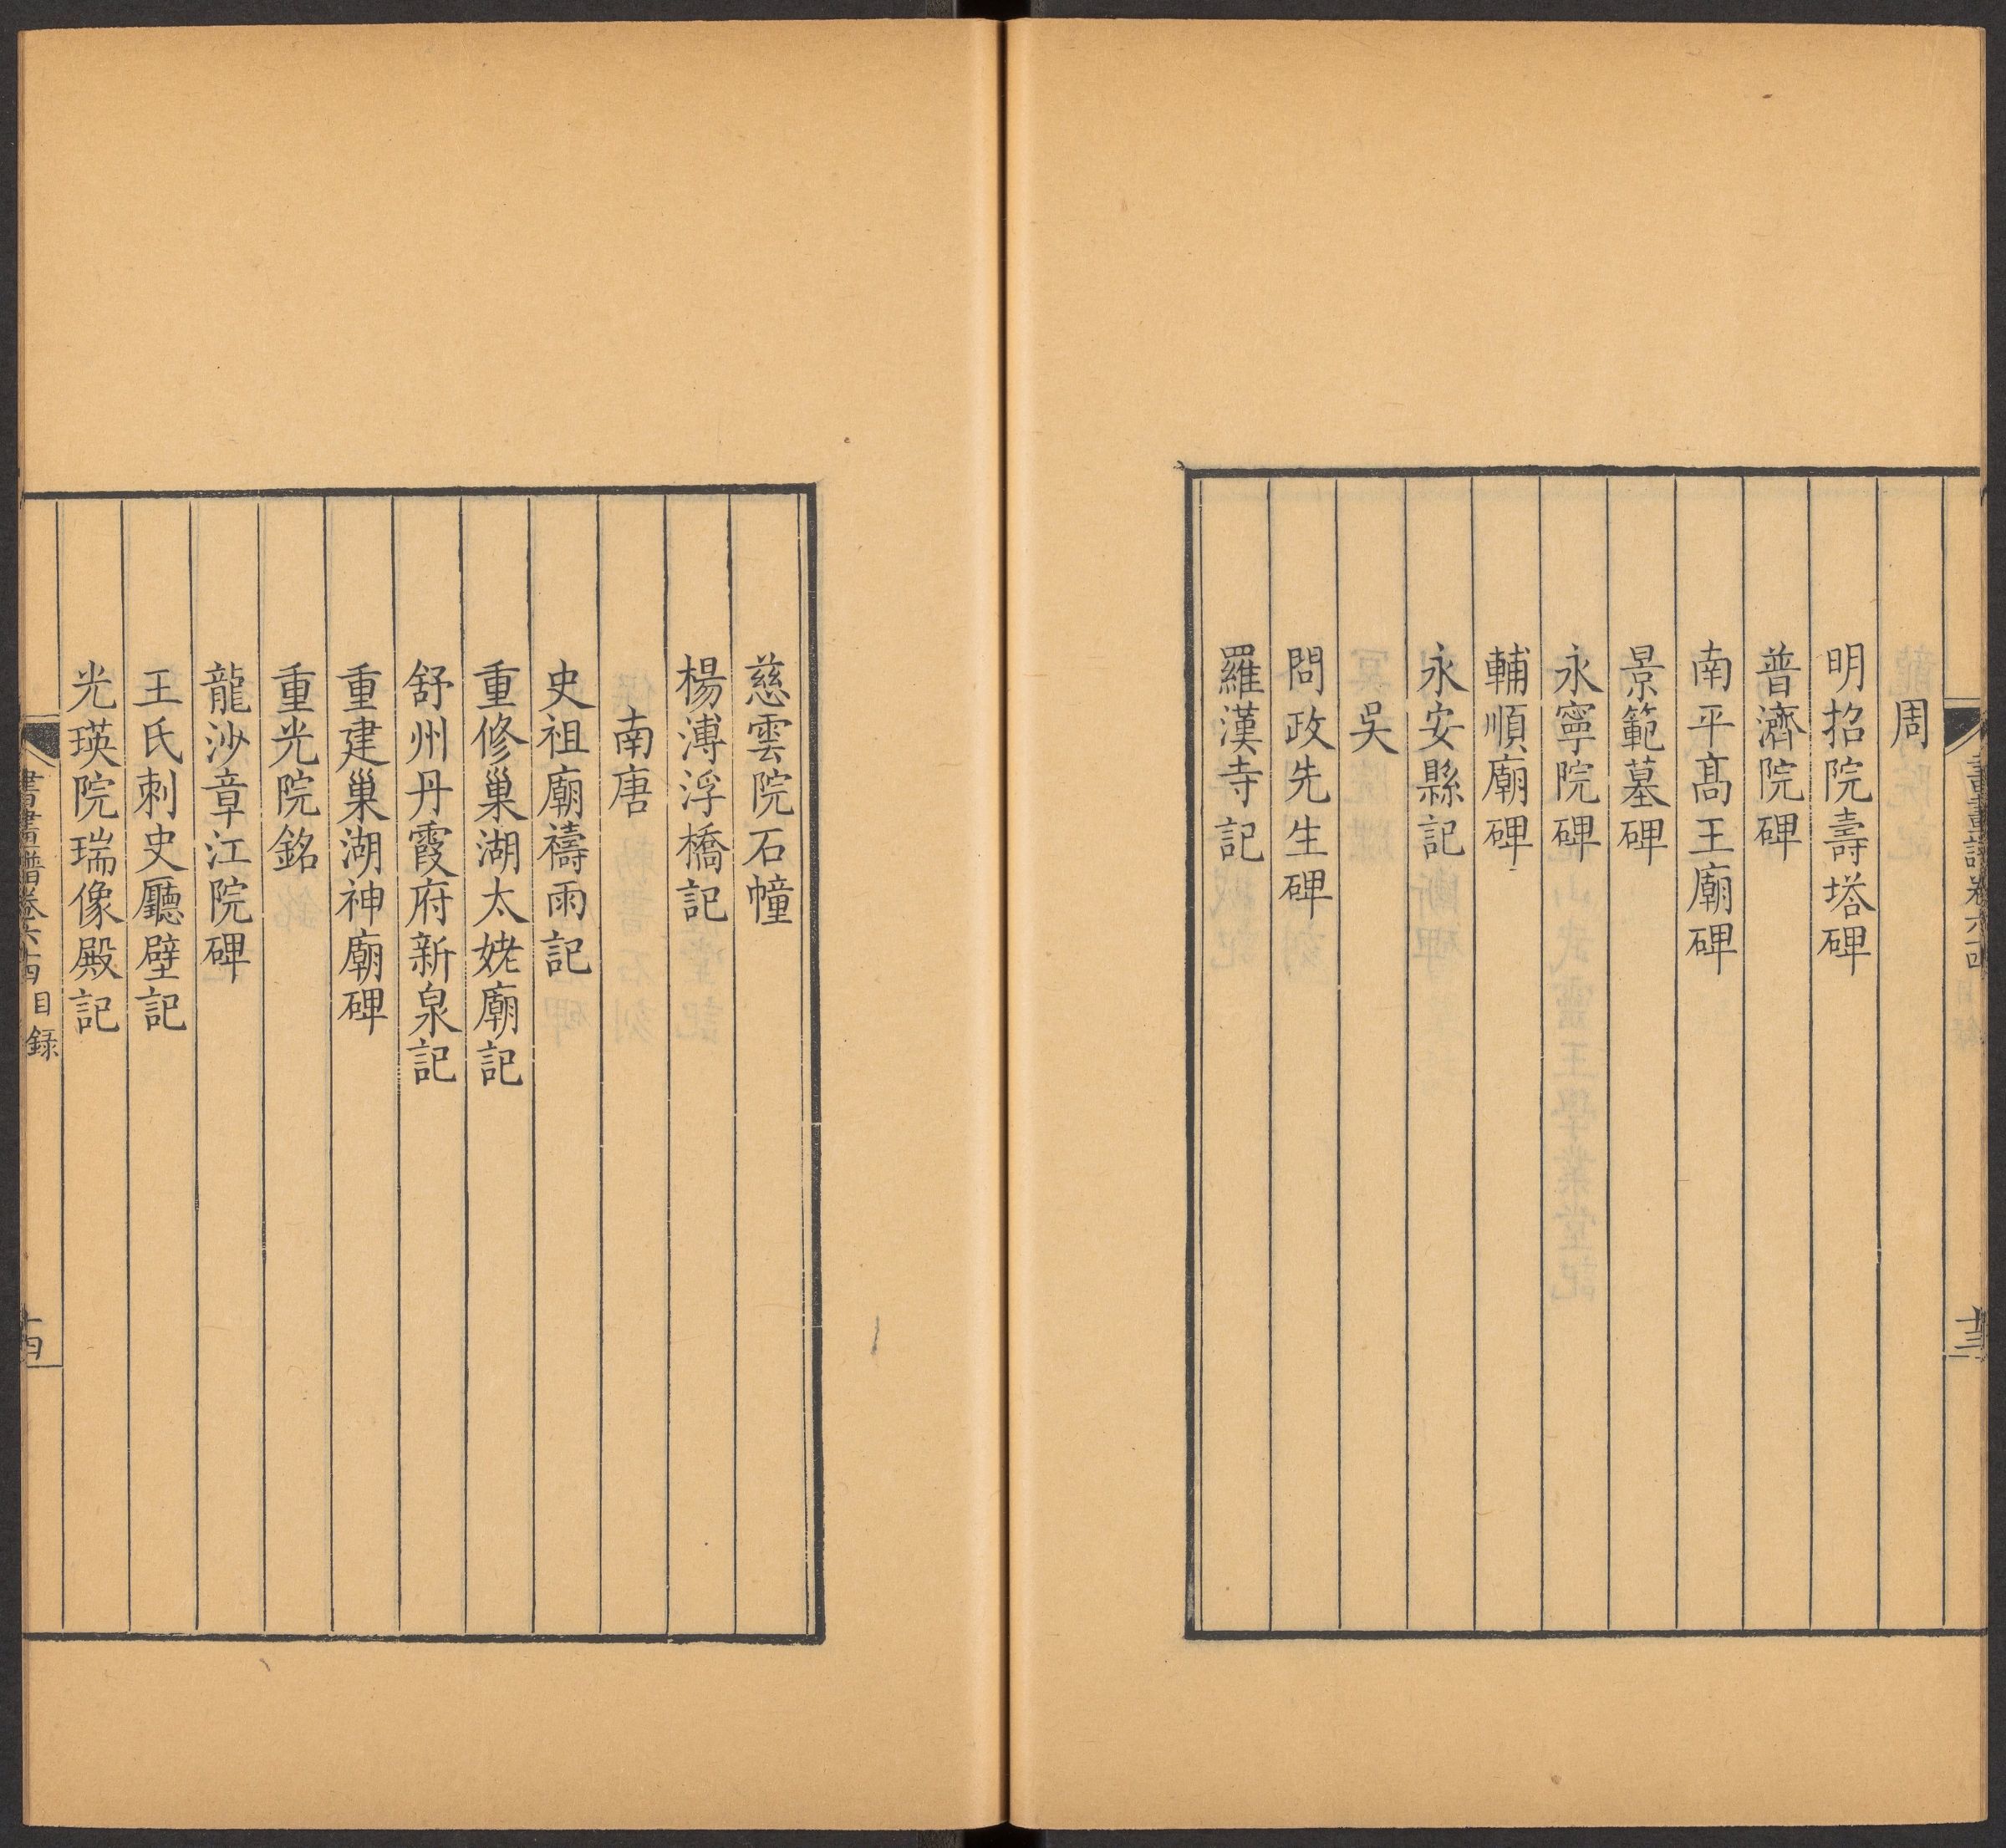 周
明招院壽塔碑
普濟院碑
南平高王廟碑
景範墓碑
永寧院碑
輔順廟碑
永安縣記
吳
問政先生碑
羅漢寺記
慈雲院石幢
楊溥浮橋記
南唐
史祖廟禱雨記
重修巢湖太姥廟記
舒州丹霞府新泉記
重建巢湖神廟碑
重光院銘
龍沙章江院碑
王氏刺史廳壁記
光瑛院瑞像殿記
書畫譜卷六十四 目録
十四